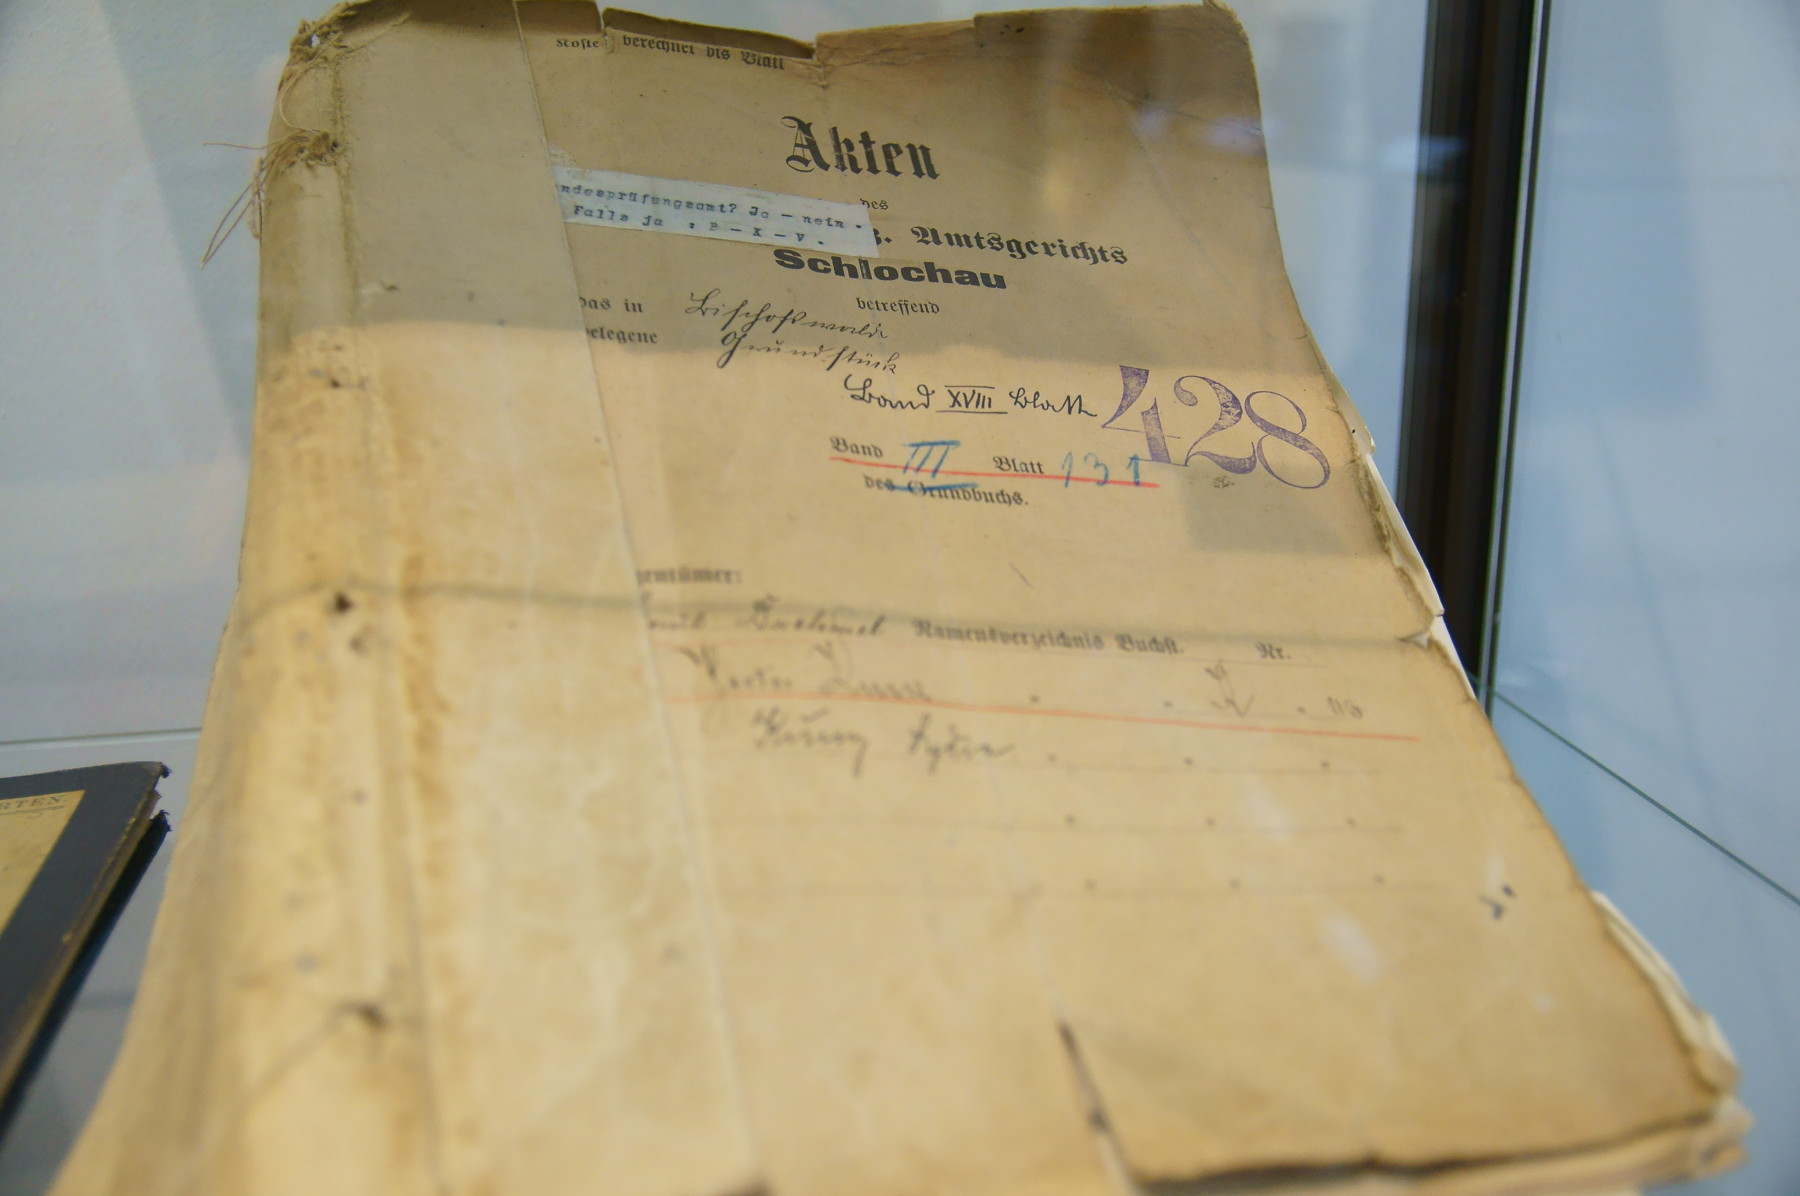 Koste verechnet bis Blatt
Akten
des
ndesprüfungsamt? Ja - nein.
Falls ja : P - X - V.
. Amtsgerichts
Schlochau
betreffend
das in Bischofswalde
belegene Grundstück
Band XVIII Blatt 428
Band III Blatt 131
des Grundbuchs.
gentümer:
Namensverzeichnis Buchst. Nr.
RTEN.